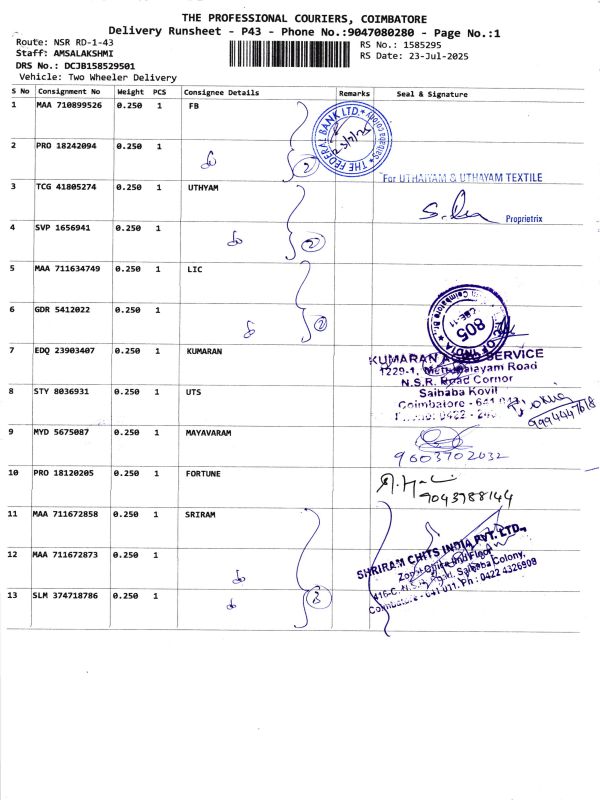 THE PROFESSIONAL COURIERS, COIMBATORE
Delivery Runsheet - P43 - Phone No.:9047080280 - Page No.:1
Route: NSR RD-1-43
RS No.: 1585295
Staff: AMSALAKSHMI
RS Date: 23-Jul-2025
DRS No.: DCJB158529501
Vehicle: Two Wheeler Delivery
S No Consignment No Weight PCS Consignee Details Remarks Seal & Signature
1 MAA 710899526 0.250 1 FB
THE FEDERAL BANK LTD.
2 PRO 18242094 0.250 1
2
For UTHAIYAM & UTHAYAM TEXTILE
3 TCG 41805274 0.250 1 UTHYAM
Proprietrix
4 SVP 1656941 0.250 1
2
5 MAA 711634749 0.250 1 LIC
805
CBE-11
OF INDIA
6 GDR 5412022 0.250 1
2
7 EDQ 23903407 0.250 1 KUMARAN
KUMARAN AUTO SERVICE
1229-1, Mettupalayam Road
N.S.R. Road Cornor
8 STY 8036931 0.250 1 UTS
Saibaba Kovil
Coimbatore - 641 043
9994447618
9 MYD 5675087 0.250 1 MAYAVARAM
9603702032
10 PRO 18120205 0.250 1 FORTUNE
9043988144
11 MAA 711672858 0.250 1 SRIRAM
SHRIRAM CHITS INDIA PVT. LTD.,
12 MAA 711672873 0.250 1
Zonal Office IInd Floor
416-C, N.S.R. Road, Saibaba Colony,
13 SLM 374718786 0.250 1
3
Coimbatore - 641 011. Ph : 0422 4326909